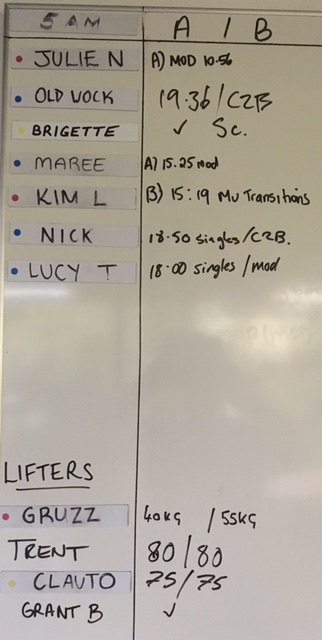 5 AM A / B
JULIE N A) MOD 10.56
OLD WOCK 19.36 / C2B
BRIGETTE ✓ Sc.
MAREE A) 15.25 mod
KIM L B) 15:19 Mu Transitions
NICK 18.50 singles/C2B.
LUCY T 18:00 singles / mod
LIFTERS
GRUZZ 40KG / 55KG
TRENT 80/80
CLAUTO 75/75
GRANT B ✓